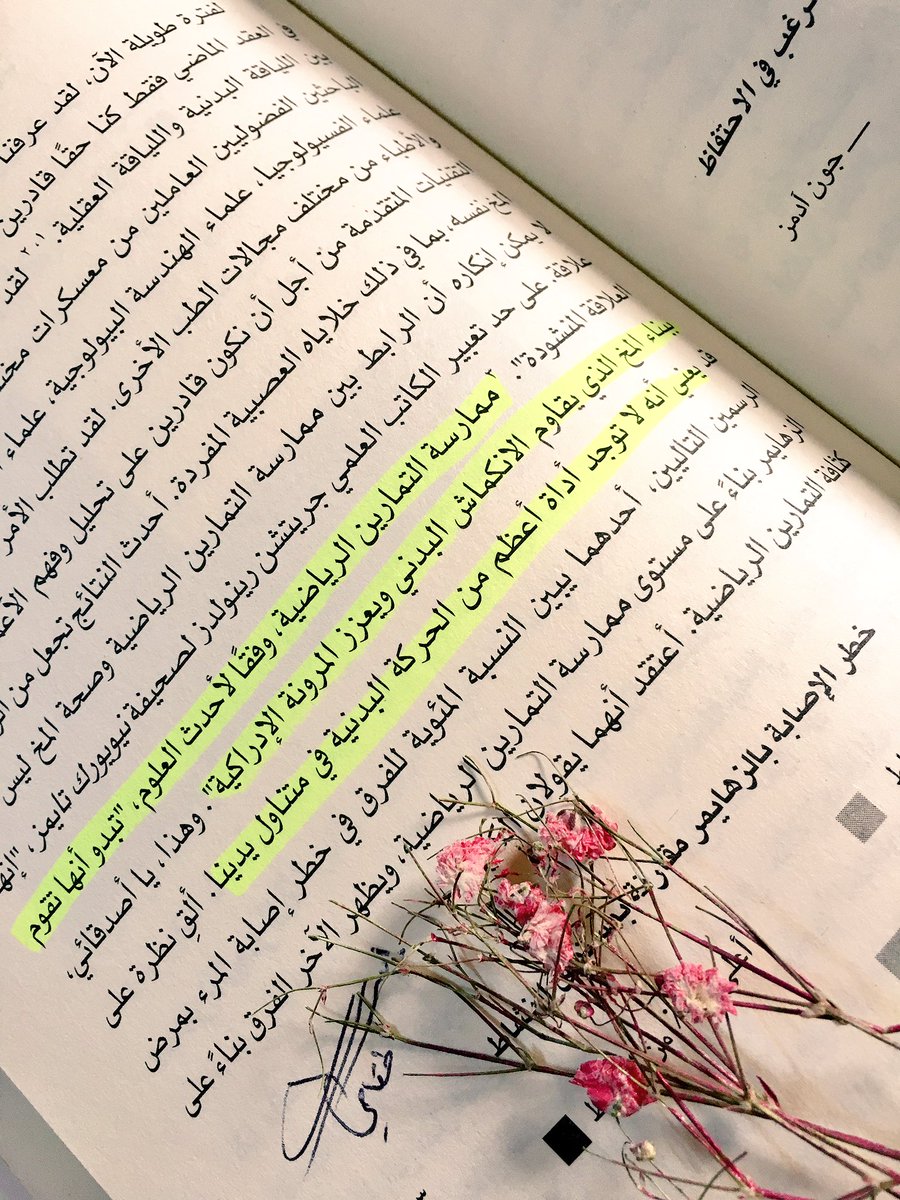 في الاحتفاظ
— جون آدمز
لفترة طويلة الآن، لقد عرفنا
في العقد الماضي فقط كنا حقًا قادرين
بين اللياقة البدنية واللياقة العقلية. ٢،١ لقد
الباحثين الفضوليين العاملين من معسكرات
علماء الفسيولوجيا، علماء الهندسة البيولوجية، علماء
والأطباء من مختلف مجالات الطب الأخرى. لقد تطلب الأمر
التقنيات المتقدمة من أجل أن نكون قادرين على تحليل وفهم
المخ نفسه، بما في ذلك خلاياه العصبية المفردة. أحدث النتائج تجعل من
لا يمكن إنكاره أن الرابط بين ممارسة التمارين الرياضية وصحة المخ ليس
علاقة. على حد تعبير الكاتب العلمي جريتشن رينولدز لصحيفة نيويورك تايمز، "إنها
العلاقة المنشودة". ممارسة التمارين الرياضية، وفقًا لأحدث العلوم، "تبدو أنها تقوم
ببناء المخ الذي يقاوم الانكماش البدني ويعزز المرونة الإدراكية". وهذا، يا أصدقائي،
قد يعني أنه لا توجد أداة أعظم من الحركة البدنية في متناول يدينا. ألقِ نظرة على
الرسمين التاليين، أحدهما يبين النسبة المئوية للفرق في خطر إصابة المرء بمرض
الزهايمر بناءً على مستوى ممارسة التمارين الرياضية، ويظهر الآخر الفرق بناءً على
كثافة التمارين الرياضية. أعتقد أنهما يقولان
خطر الإصابة بالزهايمر مقارنة